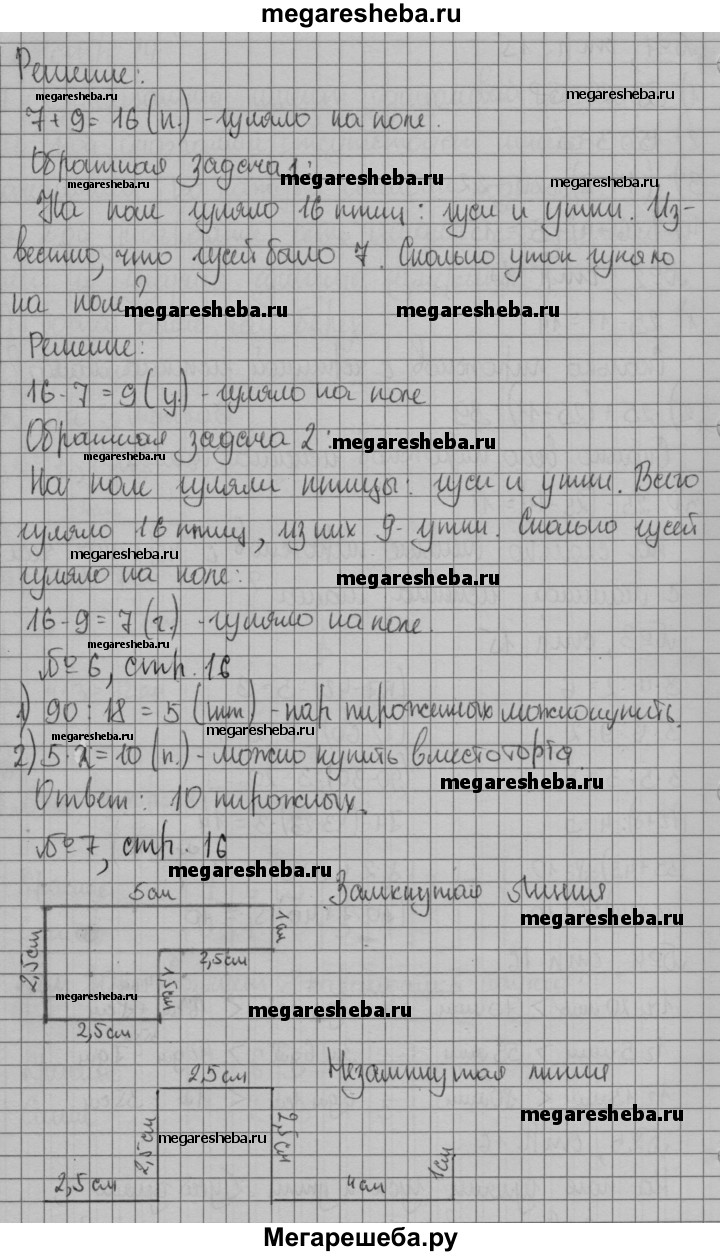 megaresheba.ru
Решение:
megaresheba.ru megaresheba.ru
7+9=16 (п.) - гуляло на поле.
Обратная задача 1:
megaresheba.ru megaresheba.ru megaresheba.ru
На поле гуляло 16 птиц: гуси и утки. Из-
вестно, что гусей было 7. Сколько уток гуляло
на поле?
megaresheba.ru megaresheba.ru
Решение:
16-7=9 (у.) - гуляло на поле
Обратная задача 2:
megaresheba.ru megaresheba.ru
На поле гуляли птицы: гуси и утки. Всего
гуляло 16 птиц, из них 9-утки. Сколько гусей
megaresheba.ru
гуляло на поле:
megaresheba.ru
16-9=7 (г.) - гуляло на поле.
megaresheba.ru
№ 6, стр. 16
1) 90:18=5 (шт) - пар пироженных можно купить.
megaresheba.ru megaresheba.ru
2) 5·2=10 (п.) - можно купить вместо торта.
megaresheba.ru
Ответ: 10 пирожных.
№ 7, стр. 16
megaresheba.ru
5см Замкнутая линия
megaresheba.ru
1см
2,5см
2,5см
1,5см
megaresheba.ru megaresheba.ru
2,5см
2,5см Незамкнутая линия
megaresheba.ru
2,5см
megaresheba.ru
2,5см
1см
2,5см
4см
Мегарешеба.ру